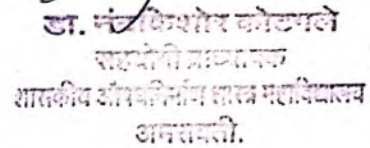 डा. नंदकिशोर कोटगले
सहयोगी प्राध्यापक
शासकीय औषधनिर्माण शास्त्र महाविद्यालय
अमरावती.